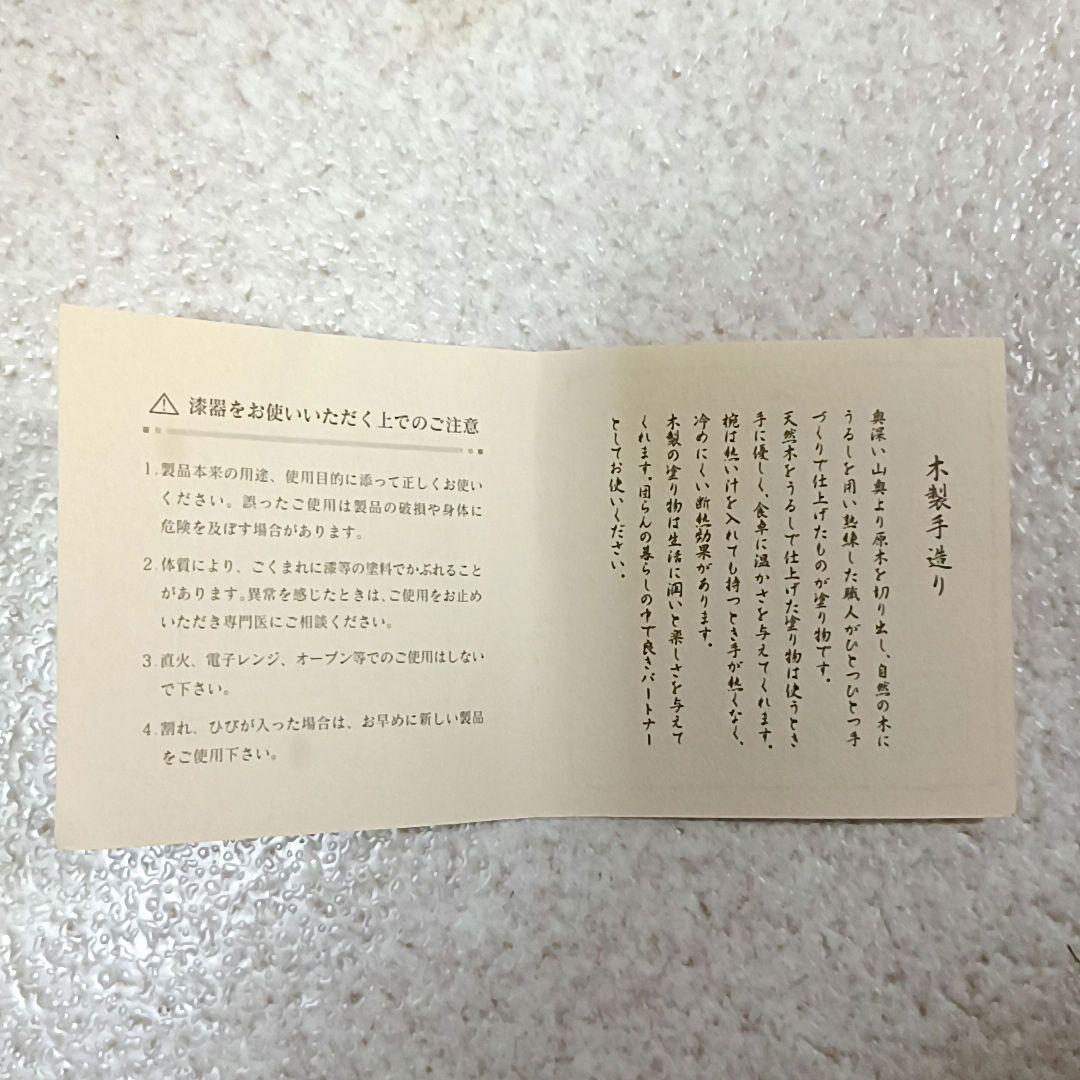 ⚠ 漆器をお使いいただく上でのご注意
1. 製品本来の用途、使用目的に添って正しくお使い
ください。誤ったご使用は製品の破損や身体に
危険を及ぼす場合があります。
2. 体質により、ごくまれに漆等の塗料でかぶれること
があります。異常を感じたときは、ご使用をお止め
いただき専門医にご相談ください。
3. 直火、電子レンジ、オーブン等でのご使用はしない
で下さい。
4. 割れ、ひびが入った場合は、お早めに新しい製品
をご使用下さい。
木製手造り
奥深い山奥より原木を切り出し、自然の木に
うるしを用い熟練した職人がひとつひとつ手
づくりで仕上げたものが塗り物です。
天然木をうるしで仕上げた塗り物は使うとき
手に優しく、食卓に温かさを与えてくれます。
椀は熱い汁を入れても持つとき手が熱くなく、
冷めにくい断熱効果があります。
木製の塗り物は生活に潤いと楽しさを与えて
くれます。団らんの暮らしの中で良きパートナー
としてお使いください。